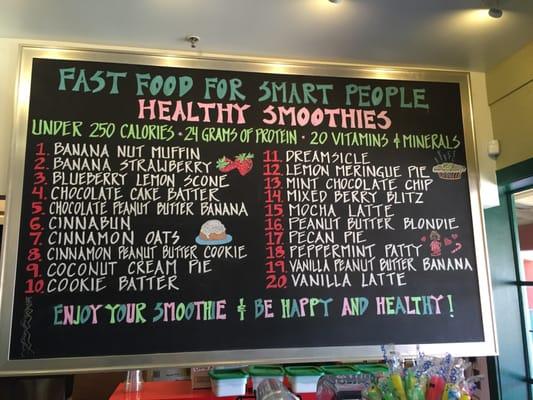 FAST FOOD FOR SMART PEOPLE
HEALTHY SMOOTHIES
UNDER 250 CALORIES · 24 GRAMS OF PROTEIN · 20 VITAMINS & MINERALS
1. BANANA NUT MUFFIN
2. BANANA STRAWBERRY
3. BLUEBERRY LEMON SCONE
4. CHOCOLATE CAKE BATTER
5. CHOCOLATE PEANUT BUTTER BANANA
6. CINNABUN
7. CINNAMON OATS
8. CINNAMON PEANUT BUTTER COOKIE
9. COCONUT CREAM PIE
10. COOKIE BATTER
11. DREAMSICLE
12. LEMON MERINGUE PIE
13. MINT CHOCOLATE CHIP
14. MIXED BERRY BLITZ
15. MOCHA LATTE
16. PEANUT BUTTER BLONDIE
17. PECAN PIE
18. PEPPERMINT PATTY
19. VANILLA PEANUT BUTTER BANANA
20. VANILLA LATTE
ENJOY YOUR SMOOTHIE & BE HAPPY AND HEALTHY!